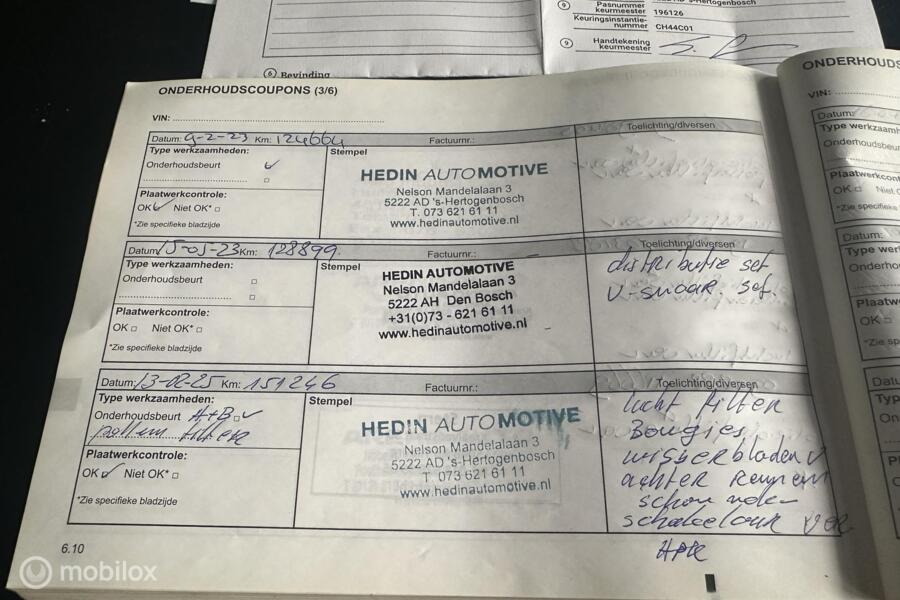 's-Hertogenbosch
Pasnummer keurmeester 196126
Keuringsinstantie-nummer CH44C01
Handtekening keurmeester
6 Bevinding
ONDERHOUDSCOUPONS (3/6)
VIN:
Datum: 9-2-23 Km: 124664 Factuurnr.: Toelichting/diversen
Type werkzaamheden: Stempel
Onderhoudsbeurt
HEDIN AUTOMOTIVE
Nelson Mandelalaan 3
5222 AD 's-Hertogenbosch
T. 073 621 61 11
www.hedinautomotive.nl
Plaatwerkcontrole:
OK Niet OK*
*Zie specifieke bladzijde
Datum: 15-05-23 Km: 128899 Factuurnr.: Toelichting/diversen
Type werkzaamheden: Stempel
Onderhoudsbeurt
HEDIN AUTOMOTIVE
Nelson Mandelalaan 3
5222 AH Den Bosch
+31(0)73 - 621 61 11
www.hedinautomotive.nl
distributie set
V-snaar. set.
Plaatwerkcontrole:
OK Niet OK*
*Zie specifieke bladzijde
Datum: 13-02-25 Km: 151246 Factuurnr.: Toelichting/diversen
Type werkzaamheden: Stempel
Onderhoudsbeurt A+B
pollen filter
HEDIN AUTOMOTIVE
Nelson Mandelalaan 3
5222 AD 's-Hertogenbosch
T. 073 621 61 11
www.hedinautomotive.nl
lucht filter
Bougies
wisserbladen V
achter remmen
schoon
Plaatwerkcontrole:
OK Niet OK*
*Zie specifieke bladzijde
6.10
ONDERHOUDS
VIN:
Datum:
Type werkzaamh
Onderhoudsbe
Plaatwerkcont
OK Niet O
*Zie specifieke
Datum:
mobilox